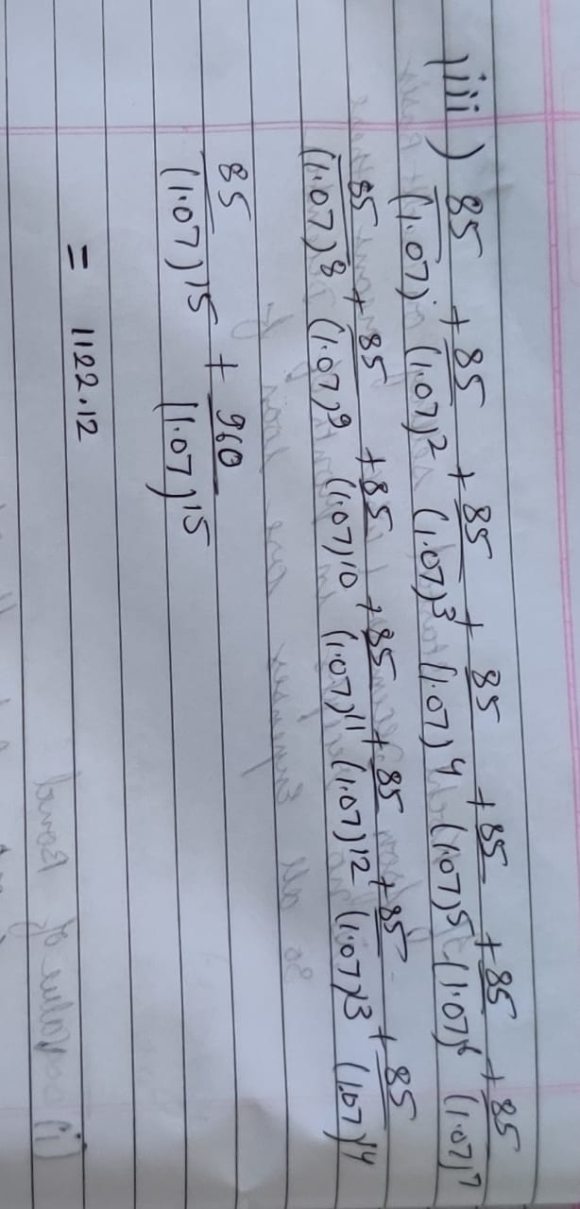 iii) 85/(1.07) + 85/(1.07)² + 85/(1.07)³ + 85/(1.07)⁴ + 85/(1.07)⁵ + 85/(1.07)⁶ + 85/(1.07)⁷
85/(1.07)⁸ + 85/(1.07)⁹ + 85/(1.07)¹⁰ + 85/(1.07)¹¹ + 85/(1.07)¹² + 85/(1.07)¹³ + 85/(1.07)¹⁴
85/(1.07)¹⁵ + 960/(1.07)¹⁵
= 1122.12